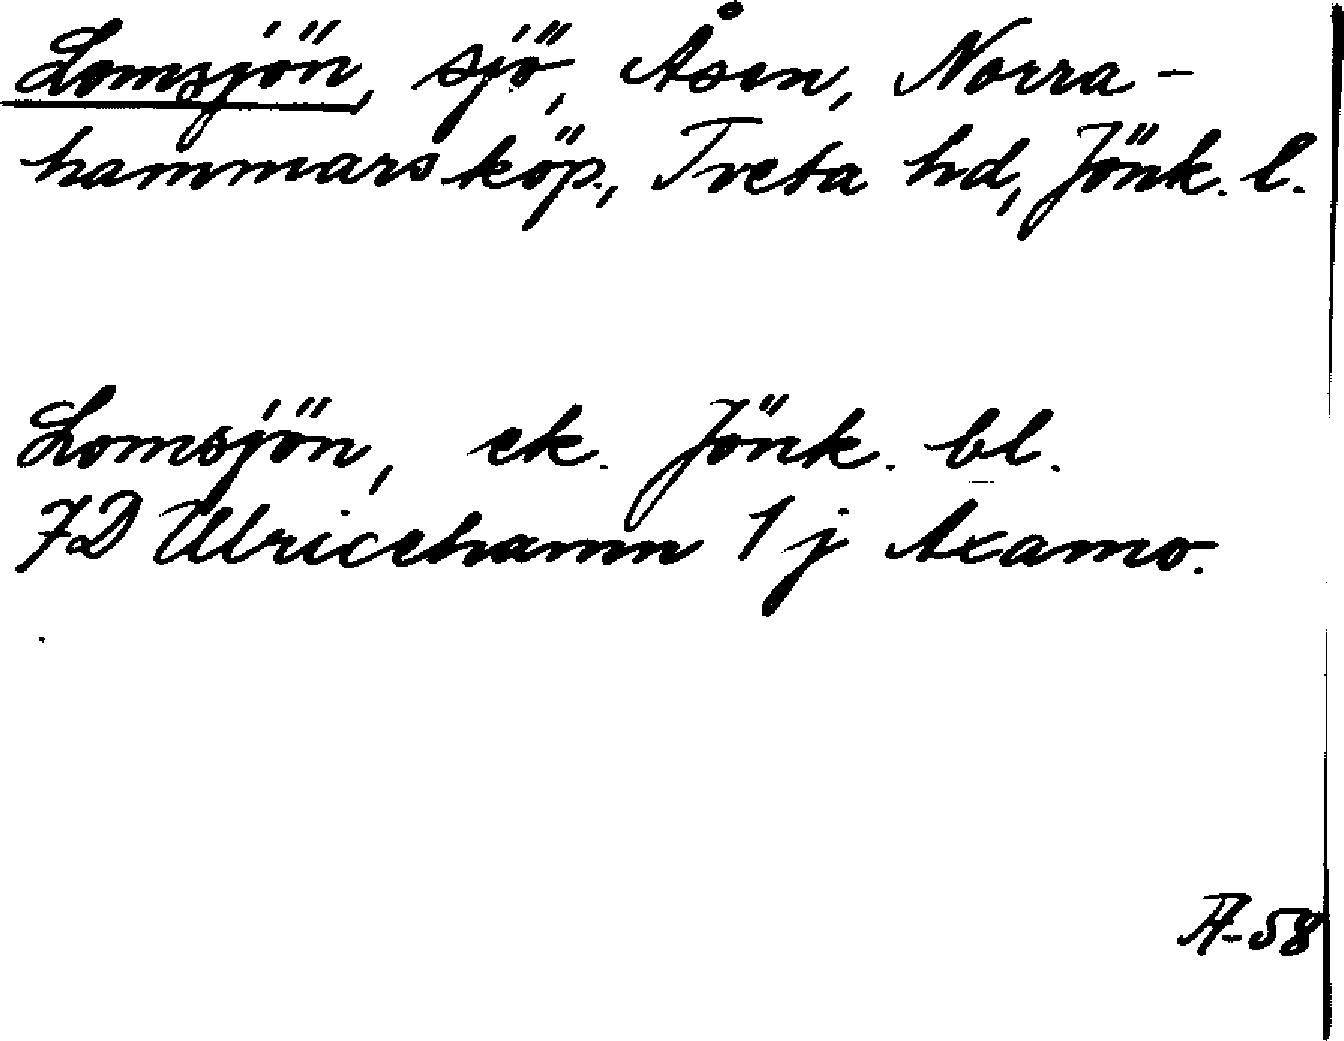 Lomsjön, sjö, Åsen, Norra-
hammars köp., Tveta hd, Jönk. l.
Lomsjön, ek. Jönk. bl.
7D Ulricehamn 1 j Axamo.
-58